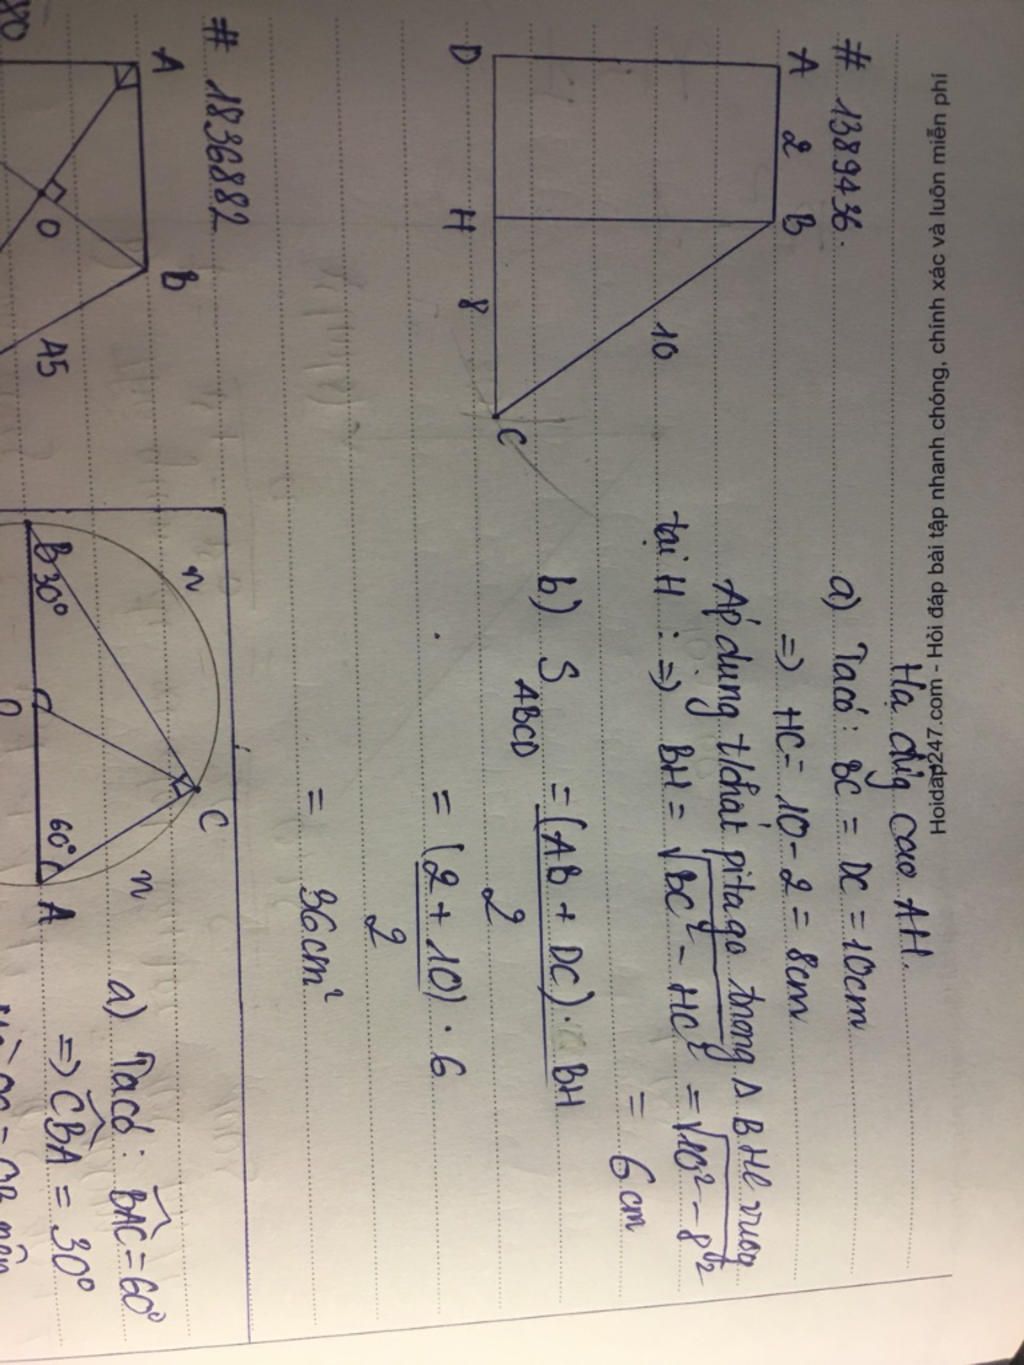 Hoidap247.com - Hỏi đáp bài tập nhanh chóng, chính xác và luôn miễn phí
# 1389436.
A 2 B
10
D H 8 C
Hạ đg cao AH.
a) Ta có: BC = DC = 10cm
=> HC = 10 - 2 = 8cm
Áp dụng t/chất pitago trong Δ BHC vuog
tại H: => BH = √BC² - HC² = √10² - 8²
= 6cm
b) S ABCD = (AB + DC). BH
2
= (2 + 10). 6
2
= 36cm²
# 1836882
A B
O
45
n
C
n
B 30°
O
60° A
a) Ta có: BAC = 60°
=> CBA = 30°